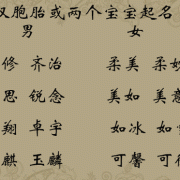 胞胎或两个宝宝起名
男 女
修 齐治 柔美
思 锐念 美如 美
翔 卓宇 如冰 如
麒 玉麟 可馨 可